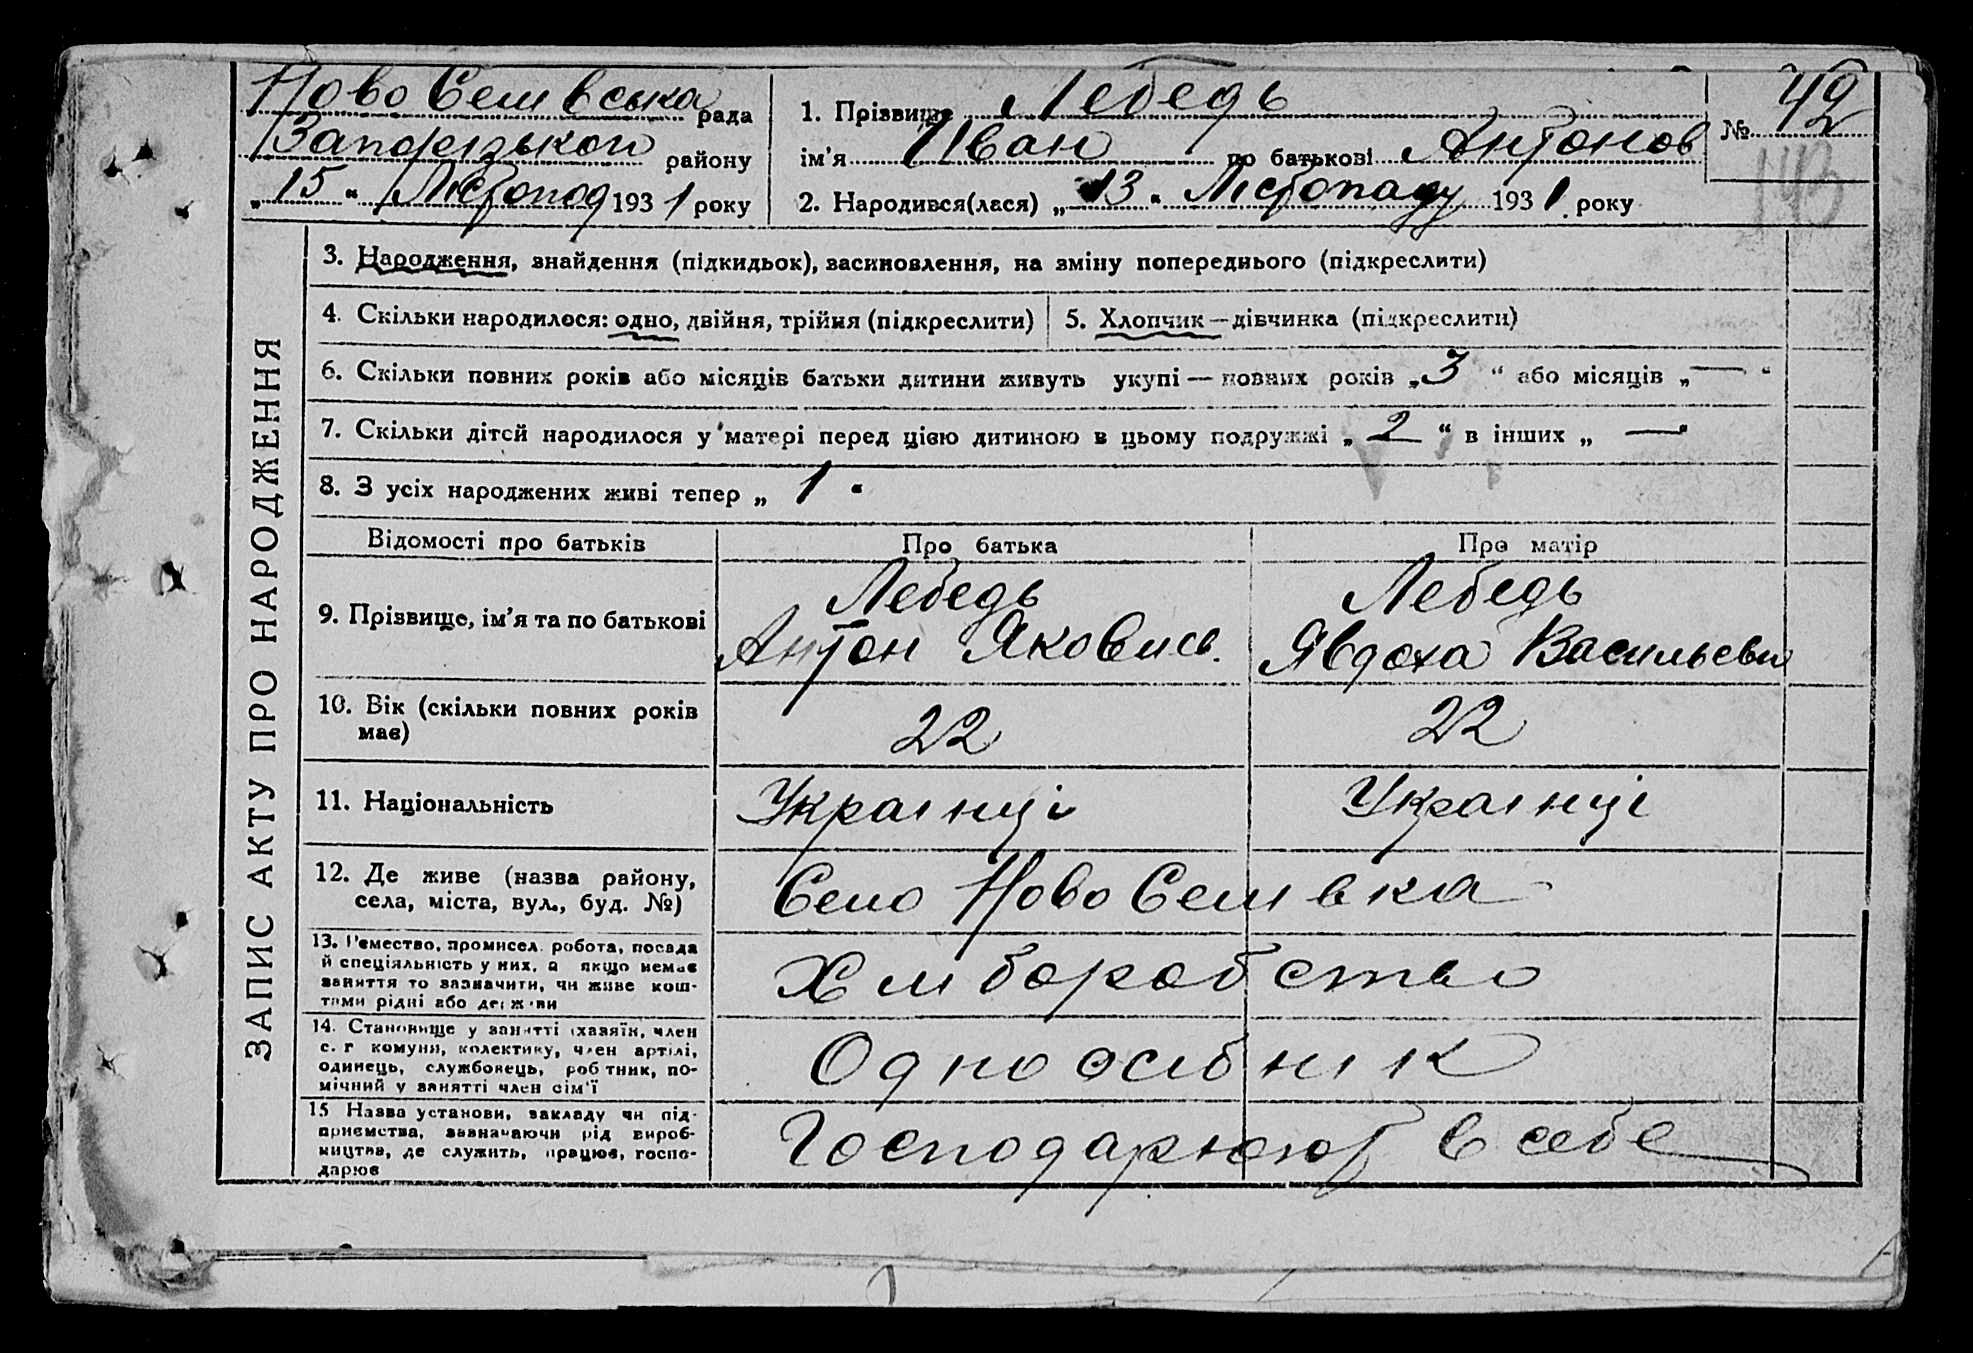 Ново Селівська рада
Запорізькой району
„ 15 “ Лістопад 1931 року
1. Прізвище Лебедь
ім'я Иван по батькові Антонов
2. Народився(лася) „ 13 “ Лістопаду 1931 року
№ 42
143
ЗАПИС АКТУ ПРО НАРОДЖЕННЯ
3. Народження, знайдення (підкидьок), засиновлення, на зміну попереднього (підкреслити)
4. Скільки народилося: одно, двійня, трійня (підкреслити)
5. Хлопчик — дівчинка (підкреслити)
6. Скільки повних років або місяців батьки дитини живуть укупі — повних років „ 3 “ або місяців „ — “
7. Скільки дітей народилося у матері перед цією дитиною в цьому подружжі „ 2 “ в інших „ — “
8. З усіх народжених живі тепер „ 1 “
Відомості про батьків
Про батька
Про матір
9. Прізвище, ім'я та по батькові
Лебедь
Антон Яковись.
Лебедь
Явдоха Васильевн
10. Вік (скільки повних років
має)
22
22
11. Національність
Украінці
Украінці
12. Де живе (назва району,
села, міста, вул., буд. №)
Село Ново Селівка
13. Ремество, промисел, робота, посада
й спеціяльність у них, а якщо немає
заняття то зазначити, чи живе кош-
тами рідні або держави
Хліборобство
14. Становище у занятті (хазяїн, член
с.-г комуни, колективу, член артілі,
одинець, службовець, робітник, по-
мічний у занятті член сім'ї
Одноосібнік
15 Назва установи, закладу чи під-
приємства, зазначаючи рід вироб-
ництва, де служить, працює, госпо-
дарює
Господарюют в себе